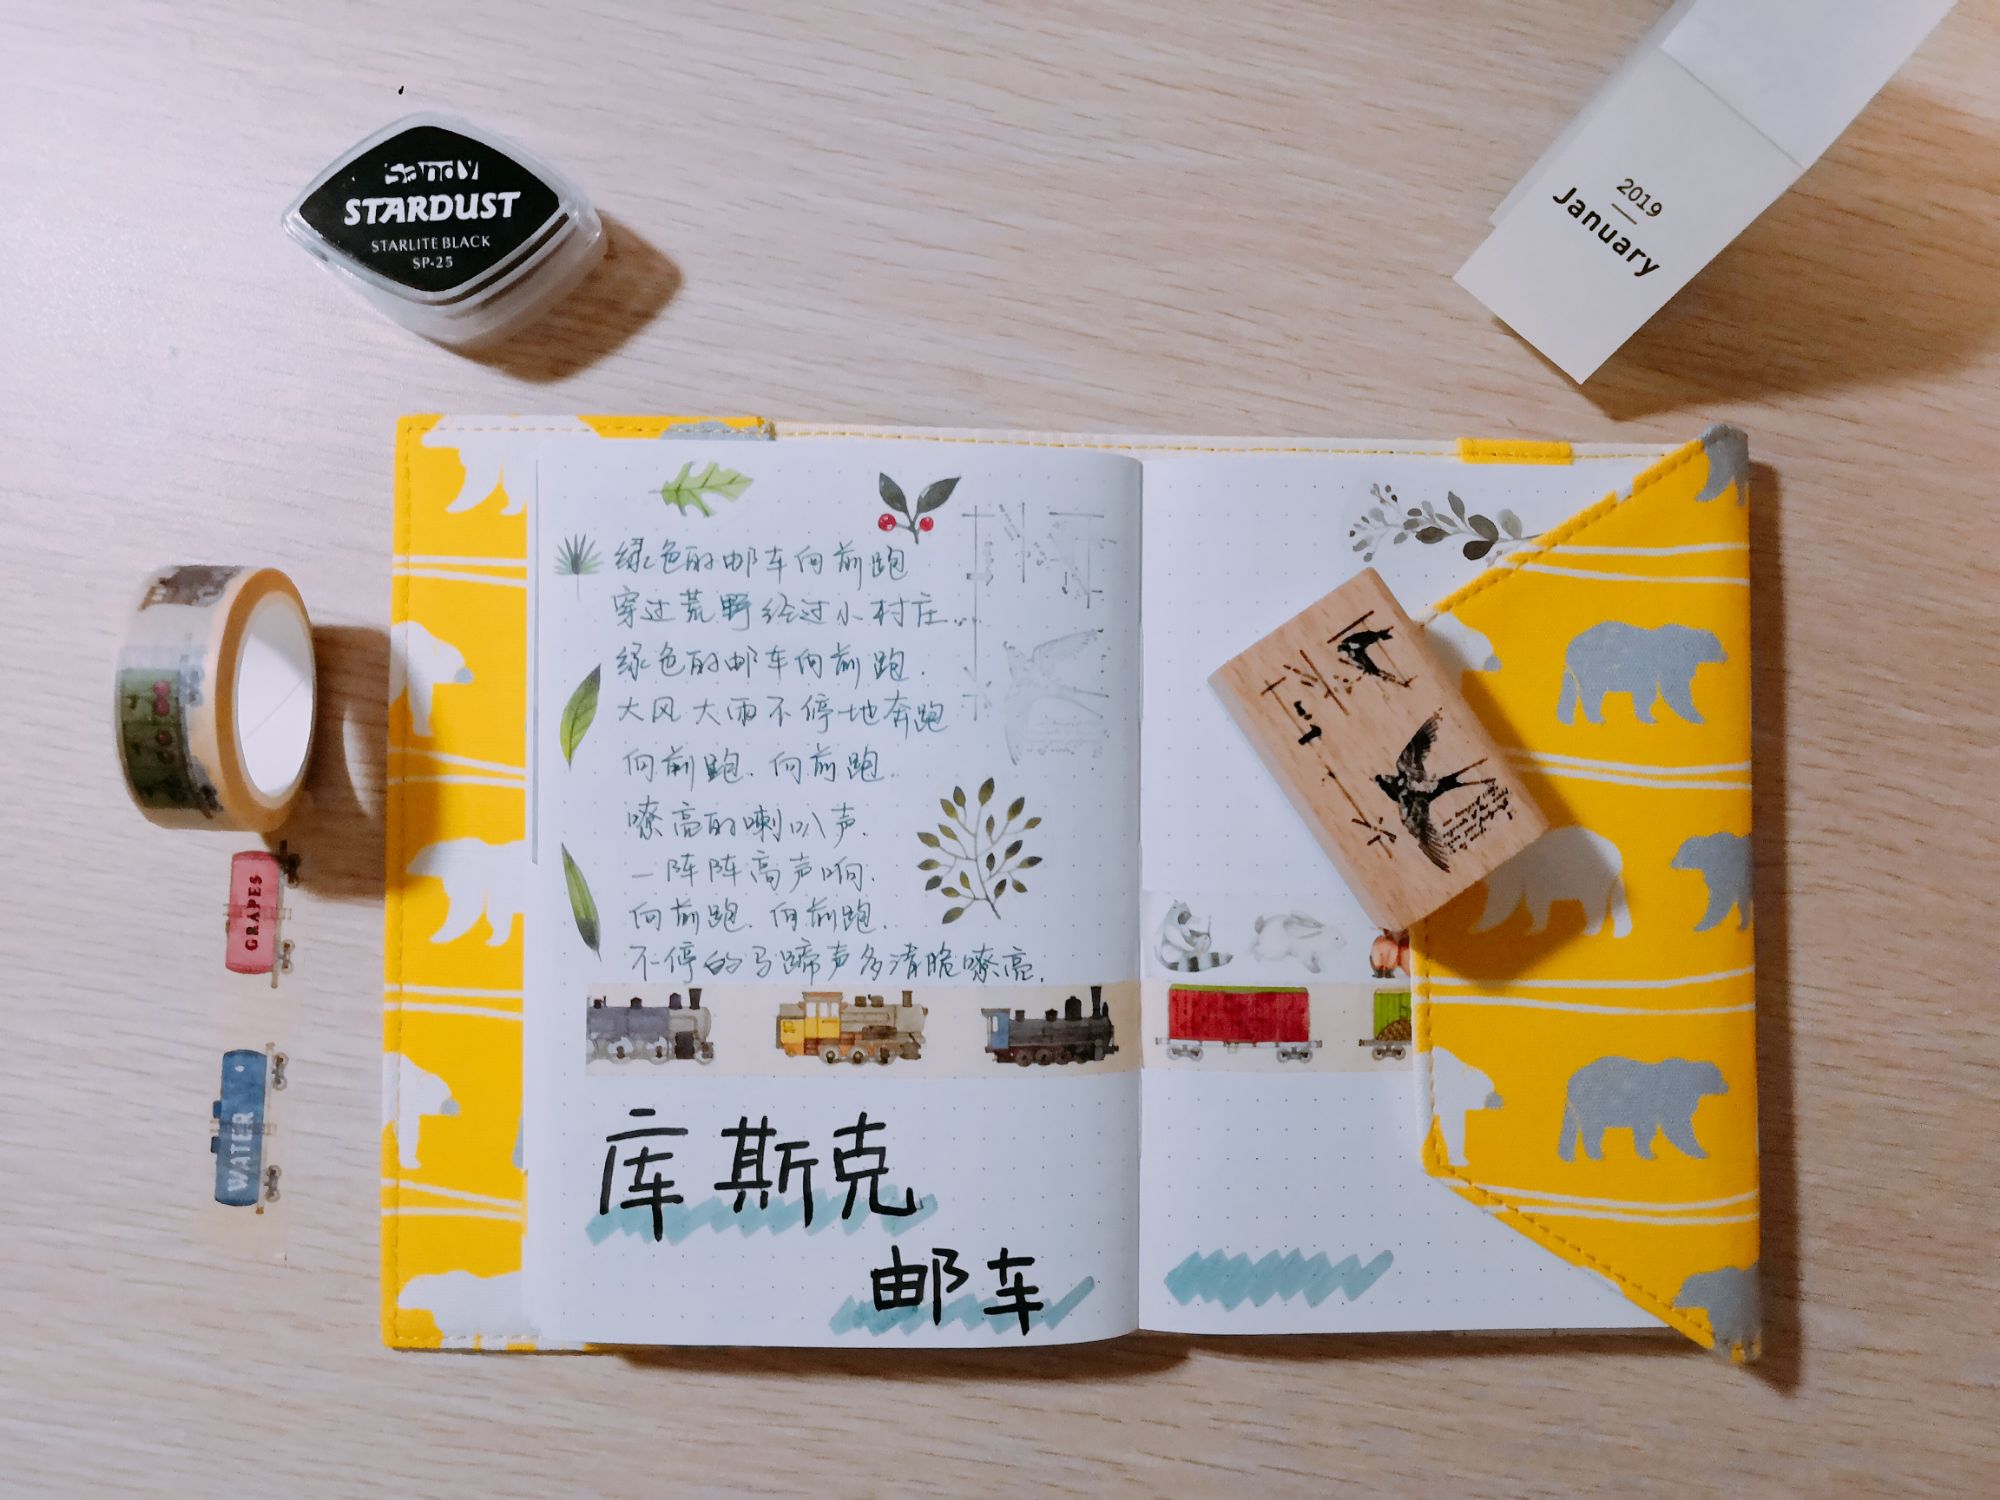 STARDUST
STARLITE BLACK
SP-25
2019
January
绿色的邮车向前跑
穿过荒野经过小村庄..
绿色的邮车向前跑.
大风大雨不停地奔跑
向前跑.向前跑.
嘹亮的喇叭声.
一阵阵高声响.
向前跑.向前跑.
不停的马蹄声多清脆嘹亮.
GRAPES
WATER
库斯克
邮车